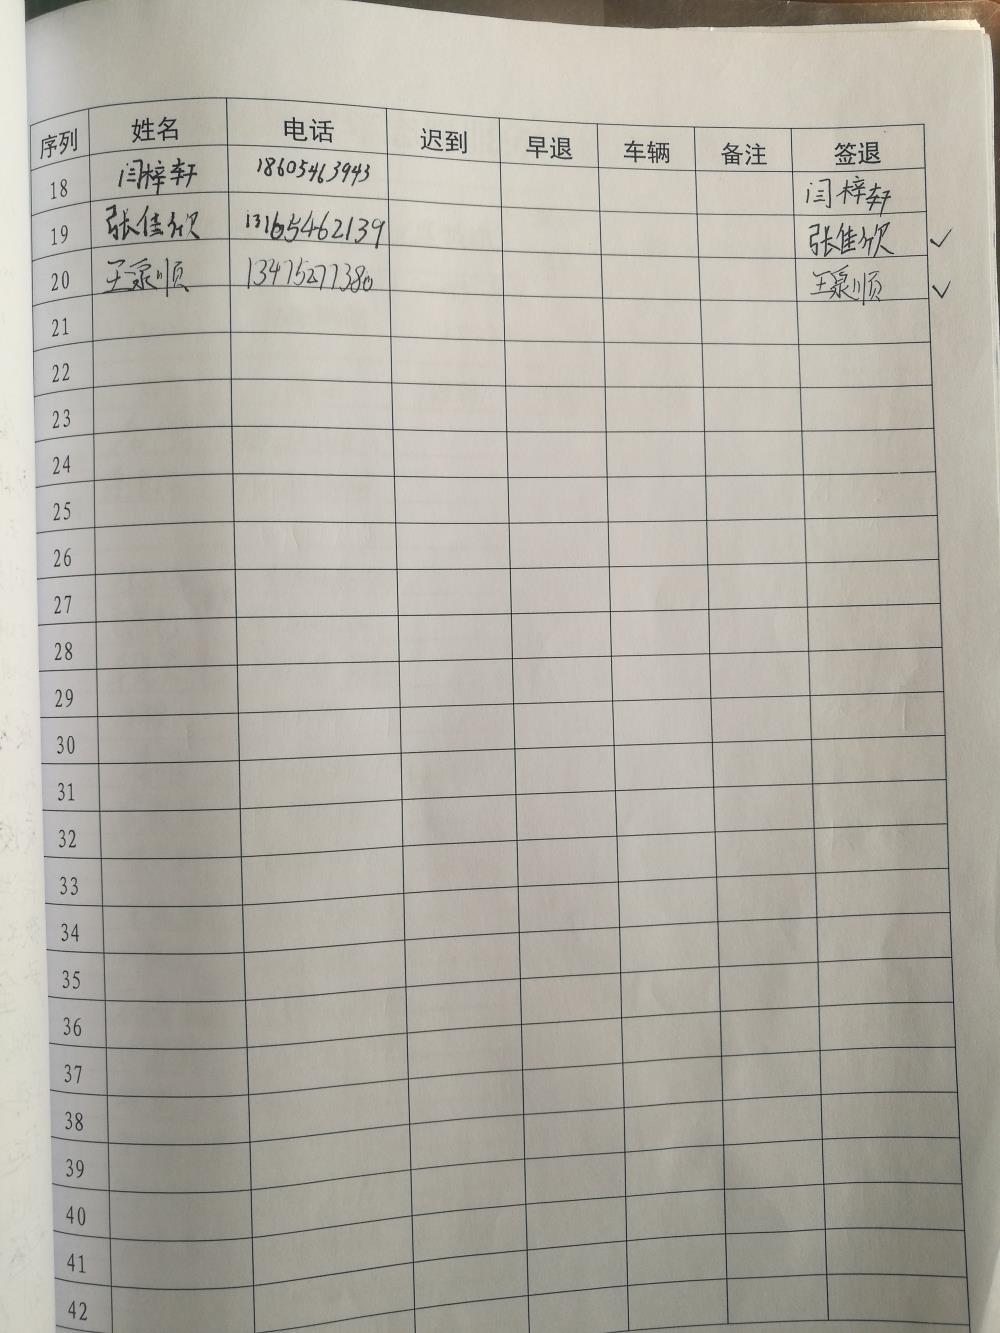 序列 姓名 电话 迟到 早退 车辆 备注 签退
18 闫梓轩 18605463943 闫梓轩
19 张佳欣 13165462139 张佳欣 ✓
20 王泉顺 13475277380 王泉顺 ✓
21
22
23
24
25
26
27
28
29
30
31
32
33
34
35
36
37
38
39
40
41
42